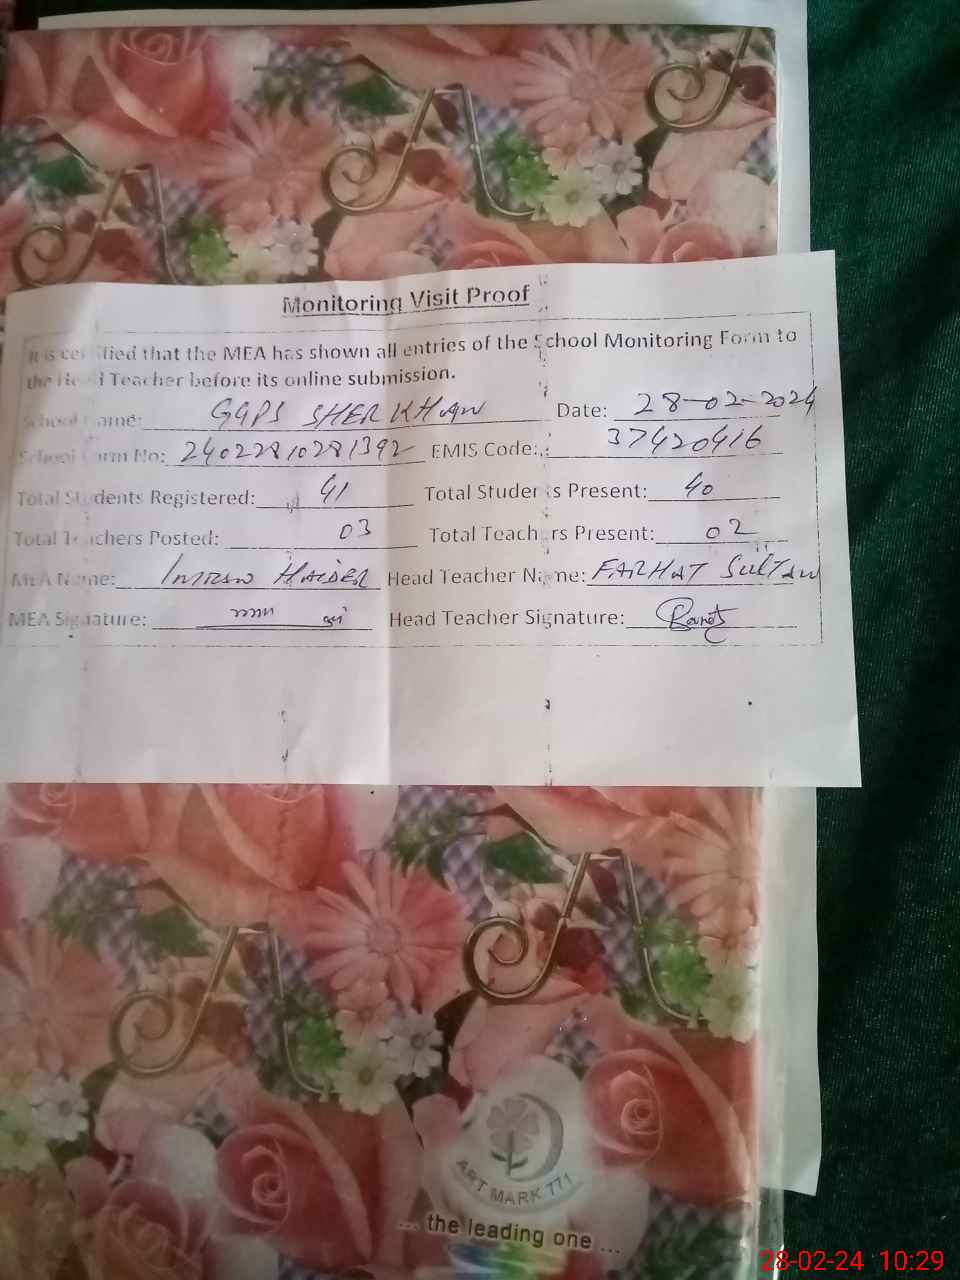 Monitoring Visit Proof
It is certified that the MEA has shown all entries of the School Monitoring Form to
the Head Teacher before its online submission.
School Name: GGPS SHER KHAN Date: 28-02-2024
School Form No: 24022810281392 EMIS Code: 37420416
Total Students Registered: 41 Total Students Present: 40
Total Teachers Posted: 03 Total Teachers Present: 02
MEA Name: IMRAN HAIDER Head Teacher Name: FARHAT SULTAN
MEA Signature: Head Teacher Signature:
ART MARK 771
... the leading one ...
28-02-24 10:29